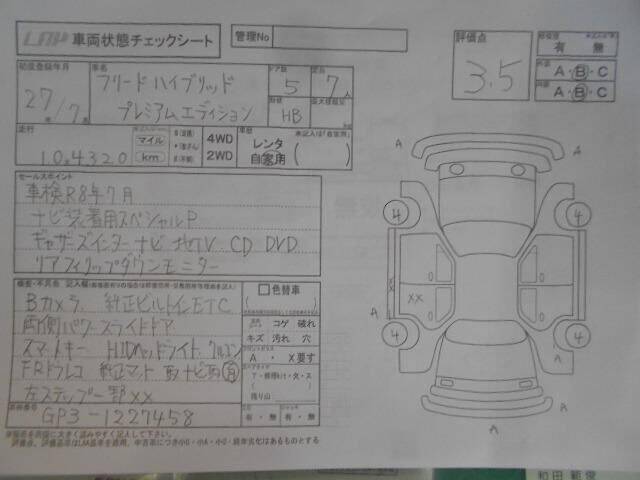 車両状態チェックシート
管理No
評価点
3.5
有 無
A・B・C
A・B・C
初度登録年月
27/7
車名
フリードハイブリッド
プレミアムエディション
ドア数
5
定員
7人
HB
最大積載量
走行
10,4320
マイル
km
4WD
2WD
車歴
レンタ
自家用
セールスポイント
車検R8年7月
ナビ装着用スペシャルP
ギャザーズインターナビ 地TV CD DVD
リアフィリップダウンモニター
Bカメラ 純正ビルトインETC
両側パワースライドドア
スマートキー HIDヘッドライト クルコン
FRドラレコ 純正マット 取ナビ有
左ステップ一部XX
色替車
コゲ 破れ
キズ 汚れ 穴
A ・ X要す
残り山
有・無
有・無
車台番号
GP3-1227458
※裏面を表面に大きく読みやすく記入して下さい。
A
A
4
4
XX
X
A
A
4
4
A
A
A